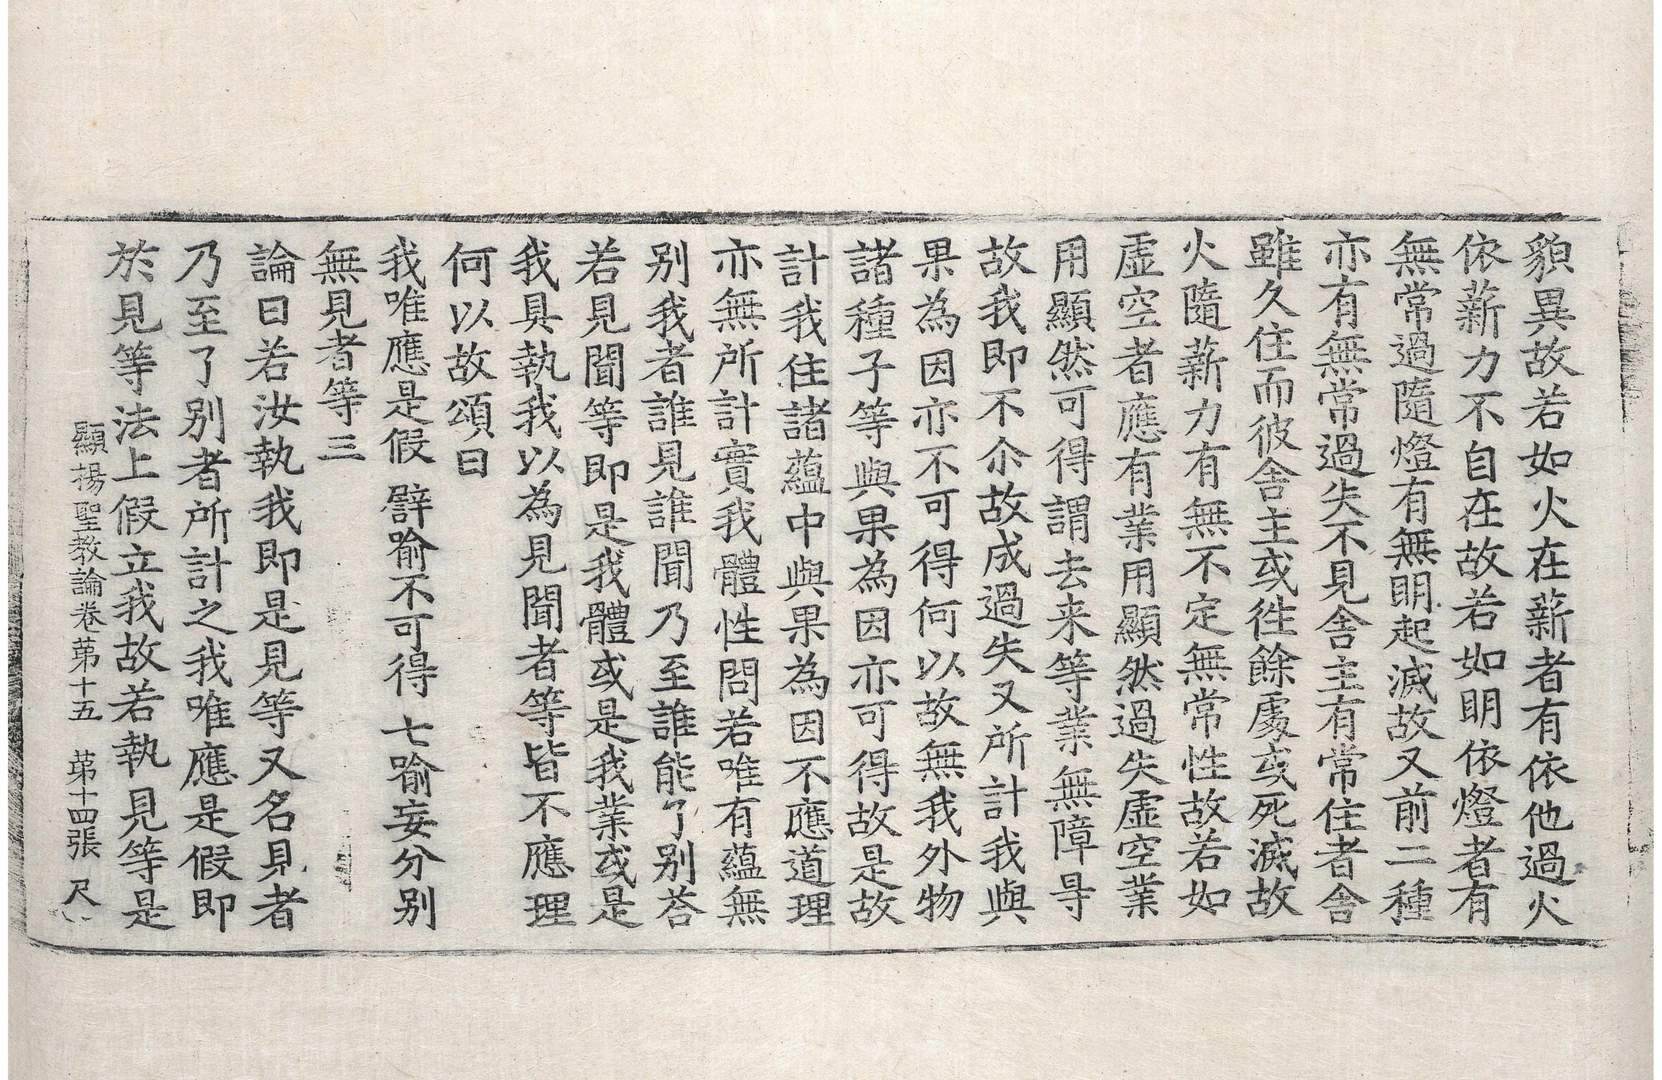 貌異故若如火在薪者有依他過火
依薪力不自在故若如明依燈者有
無常過隨燈有無明起滅故又前二種
亦有無常過失不見舍主有常住者舍
雖久住而彼舍主或徃餘處或死滅故
火隨薪力有無不定無常性故若如
虛空者應有業用顯然過失虛空業
用顯然可得謂去来等業無障㝵
故我即不尒故成過失又所計我與
果為因亦不可得何以故無我外物
諸種子等與果為因亦可得故是故
計我住諸蘊中與果為因不應道理
亦無所計實我體性問若唯有蘊無
別我者誰見誰聞乃至誰能了別荅
若見聞等即是我體或是我業或是
我具執我以為見聞者等皆不應理
何以故頌曰
我唯應是假 譬喻不可得 七喻妄分別
無見者等三
論曰若汝執我即是見等又名見者
乃至了別者所計之我唯應是假即
於見等法上假立我故若執見等是
顯揚聖教論卷苐十五 苐十四張 尺